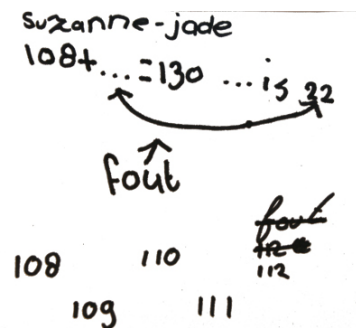 suzanne-jade
108+...=130 ...is 22
fout
fout
112
112
108 110
109 111